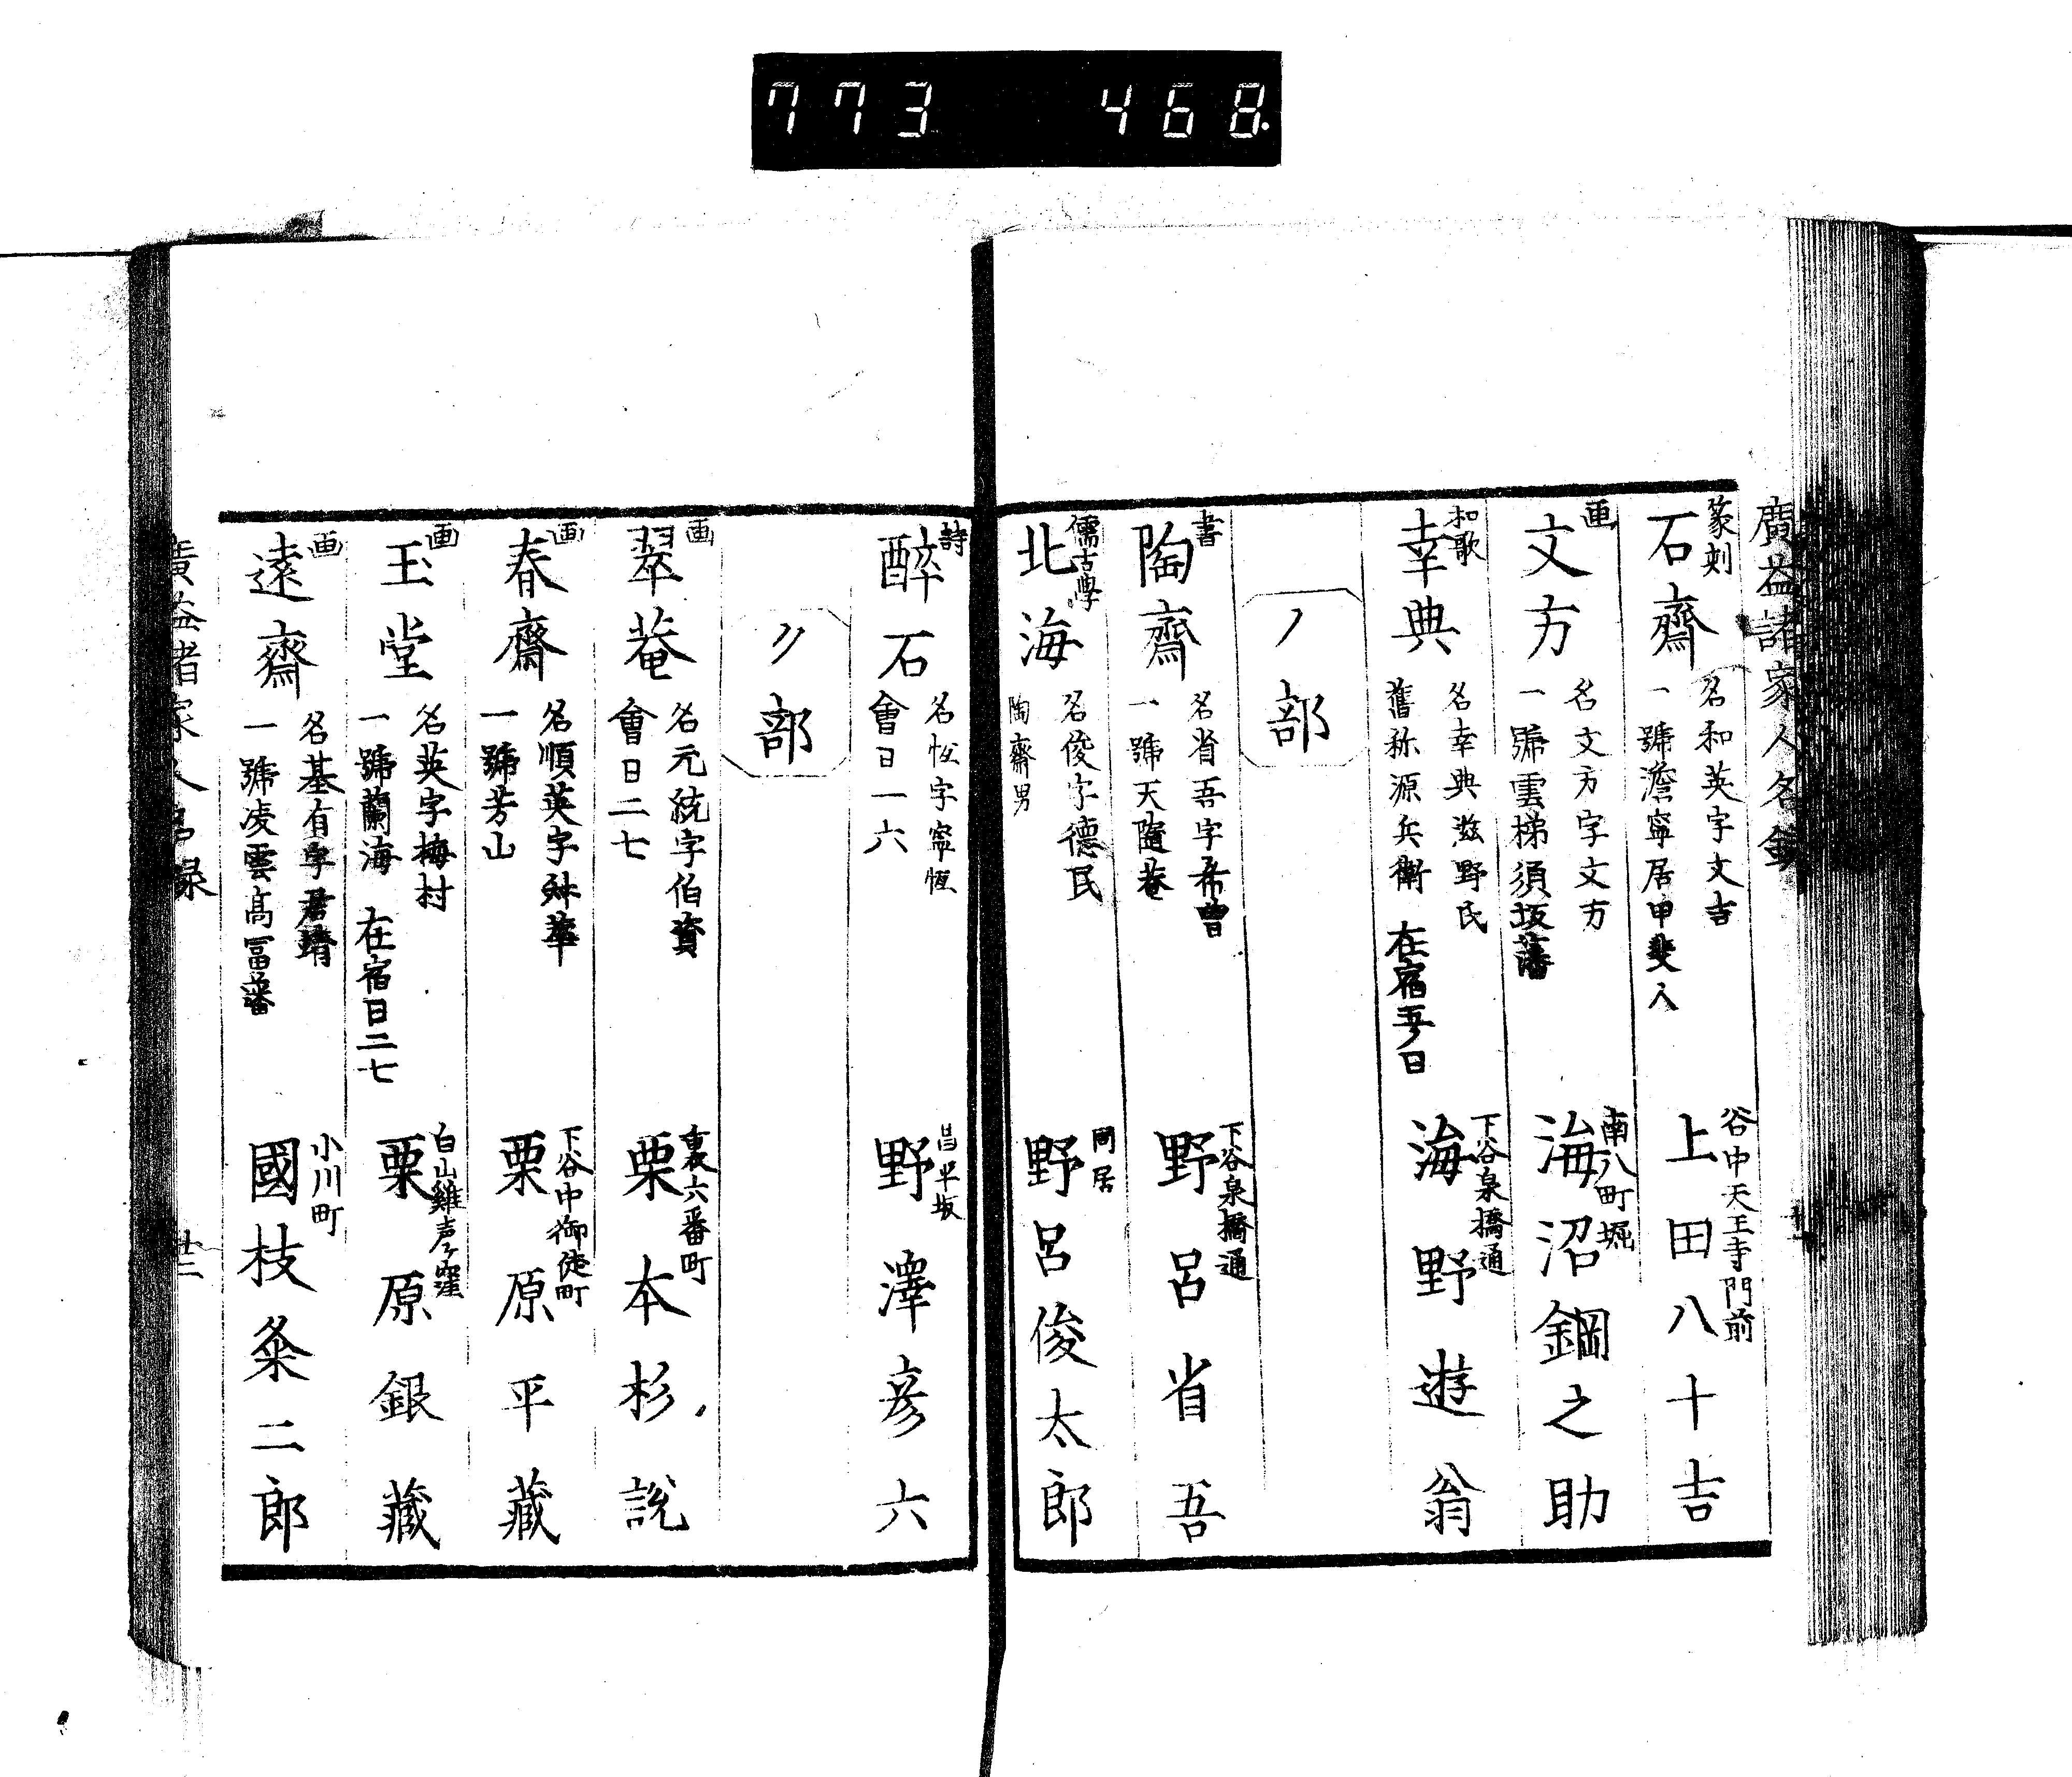 773 468.
廣益諸家人名録
篆刻
石齋
名和英字文吉
一號澹寧居甲斐人
谷中天王寺門前
上田八十吉
画
文方
名文方字文方
一號雲梯須坂藩
南八町堀
海沼鋼之助
和歌
幸典
名幸典滋野氏
舊称源兵衛 在宿五ノ日
下谷泉橋通
海野遊翁
ノ部
書
陶齋
名省吾字希曽
一號天隨菴
下谷泉橋通
野呂省吾
儒古學
北海
名俊字德民
陶齋男
同居
野呂俊太郎
詩
醉石
名恒字寧恒
會日一六
昌平坂
野澤彦六
ク部
画
翠菴
名元統字伯資
會日二七
裏六番町
栗本杉説
画
春齋
名順英字
一號芳山
下谷中御徒町
栗原平藏
画
玉堂
名英字梅村
一號蘭海 在宿日二七
白山雞声窪
栗原銀藏
画
遠齋
名基有字君靖
一號凌雲高冨藩
小川町
國枝粂二郎
廣益諸家人名録
廿二